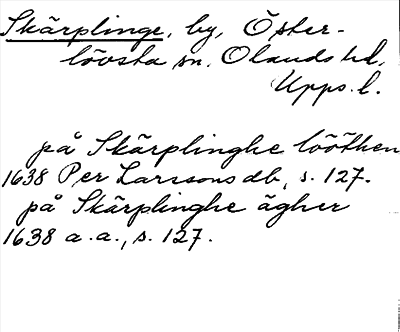 Skärplinge, by, Öster-
lövsta sn, Olands hd,
Upps. l.
på Skärplinghe lööthen
1638 Per Larssons db, s. 127.
på Skärplinghe ägher
1638 a.a., s. 127.